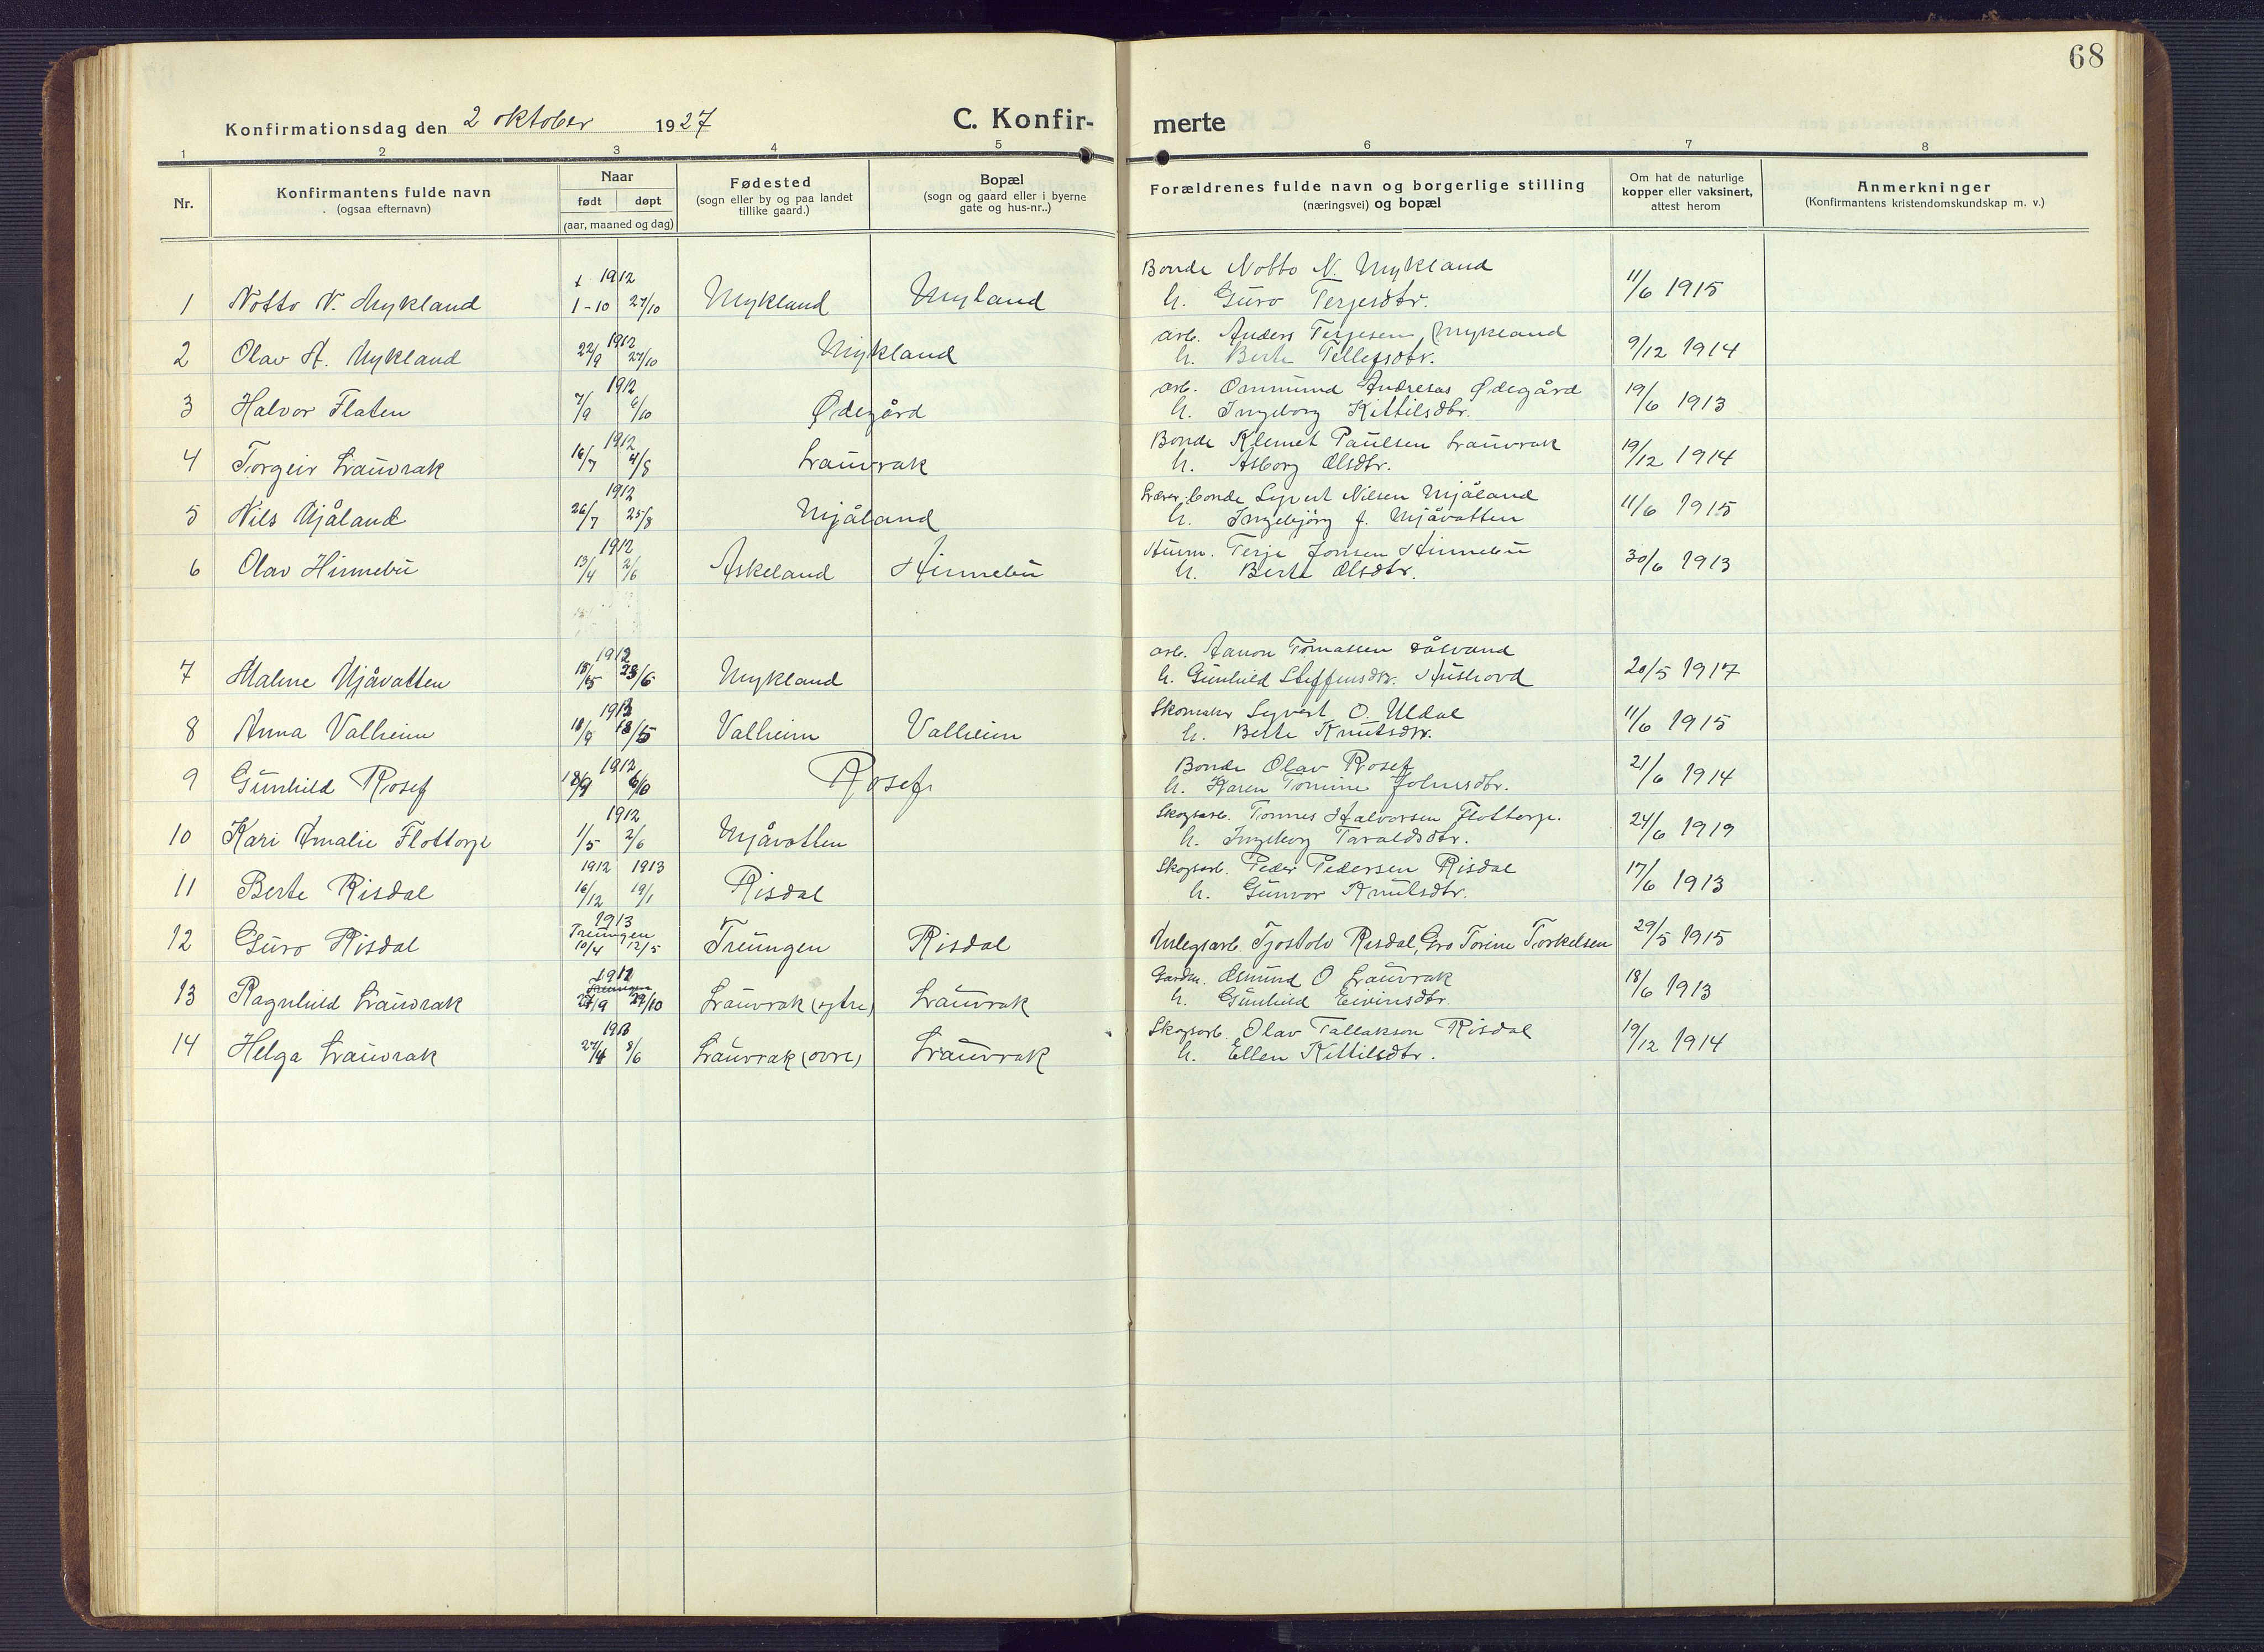 68
Konfirmationsdag den 2 oktober 1927
C. Konfir-
merte
1 2 3 4 5 6 7 8
Nr.
Konfirmantens fulde navn
(ogsaa efternavn)
Naar
født døpt
(aar, maaned og dag)
Fødested
(sogn eller by og paa landet
tillike gaard.)
Bopæl
(sogn og gaard eller i byerne
gate og hus-nr..)
Forældrenes fulde navn og borgerlige stilling
(næringsvei) og bopæl
Om hat de naturlige
kopper eller vaksinert,
attest herom
Anmerkninger
(Konfirmantens kristendomskundskap m. v.)
1912
Bonde Notto N. Mykland
1 Notto N. Mykland 1-10 27/10 Mykland Myland h. Guro Terjesdtr. 11/6 1915
1912
arb. Anders Terjesen Mykland
2 Olav A. Mykland 22/9 27/10 Mykland h. Berte Tellefsdtr. 9/12 1914
1912
arb. Ommund Andresas Ødegård
3 Halvor Flaten 7/9 6/10 Ødegård h. Ingeborg Kittilsdtr. 19/6 1913
1912
Bonde Klemet Paulsen Lauvrak
4 Torgeir Lauvrak 16/7 4/8 Lauvrak h. Asborg Olsdtr. 19/12 1914
1912
Lærer, bonde Syvert Nilsen Mjåland
5 Nils Mjåland 26/7 25/8 Mjåland h. Ingebjörg f. Mjåvatten 11/6 1915
1912
Husm. Terje Jonsen Hinnebu
6 Olav Hinnebu 13/4 2/6 Askeland Hinnebu h. Berte Olsdtr. 30/6 1913
1912
arb. Aanon Tomassen Dåsvand
7 Malene Mjåvatten 15/5 23/6 Mykland h. Gunhild Steffensdtr. Hushovd 20/5 1917
1913
Skomaker Syvert O. Uldal
8 Anna Valheim Valheim Valheim h. Berte Knutsdtr. 11/6 1915
1912
Bonde Olav Rosef
9 Gunhild Rosef Rosef h. Karen Tomine Johnsdtr. 21/6 1914
1912
Skogsarb. Tonnes Halvorsen Flottorp.
10 Kari Amalie Flottorp 1/5 2/6 Mjåvatten h. Ingeborg Taraldsdtr. 24/6 1919
1912 1913
Skogsarb. Peder Pedersen Risdal
11 Berte Risdal 16/12 19/1 Risdal h. Gunvor Knutsdtr. 17/6 1913
1913
Treungen
12 Guro Risdal 10/4 12/5 Treungen Risdal Anlegsarb. Tjostolv Risdal, Gro Torine Torkelsen 29/5 1915
1912
Treungen
Gardm. Osmund O Lauvrak
13 Ragnhild Lauvrak 27/9 27/10 Lauvrak (ytre) Lauvrak h. Gunhild Eivinsdtr. 18/6 1913
1913
Skogsarb. Olav Tallakson Risdal
14 Helga Lauvrak 27/4 8/6 Lauvrak (ovre) Lauvrak h. Ellen Kittilsdtr. 19/12 1914